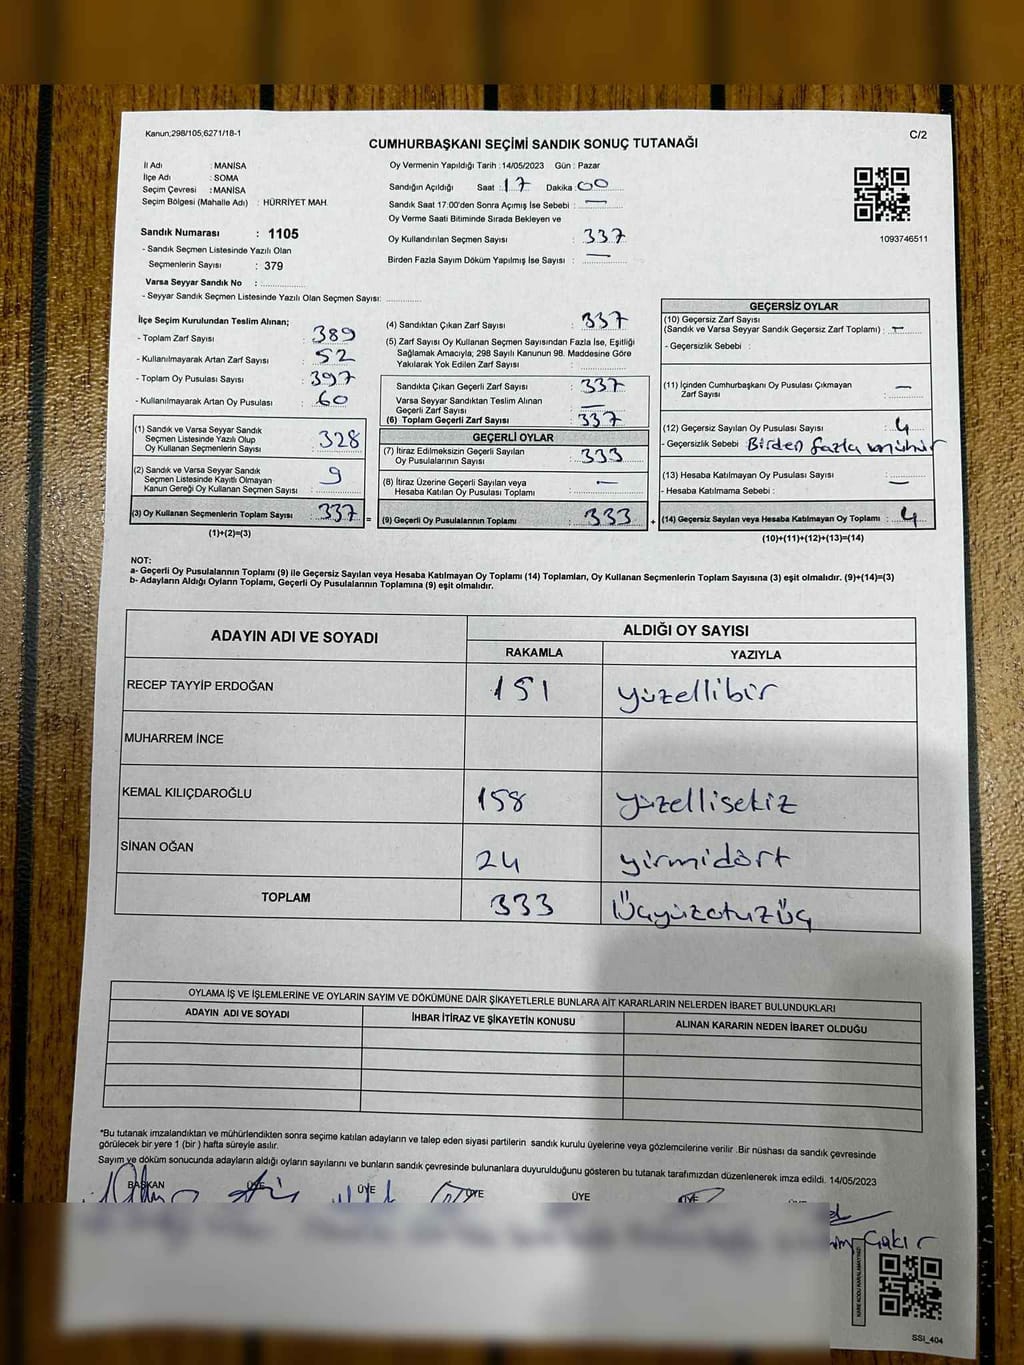 Kanun;298/105;6271/18-1
C/2
CUMHURBAŞKANI SEÇİMİ SANDIK SONUÇ TUTANAĞI
İl Adı : MANİSA
İlçe Adı : SOMA
Seçim Çevresi : MANİSA
Seçim Bölgesi (Mahalle Adı) : HÜRRİYET MAH.
Sandık Numarası : 1105
- Sandık Seçmen Listesinde Yazılı Olan
Seçmenlerin Sayısı : 379
Varsa Seyyar Sandık No :
- Seyyar Sandık Seçmen Listesinde Yazılı Olan Seçmen Sayısı:
Oy Vermenin Yapıldığı Tarih : 14/05/2023 Gün : Pazar
Sandığın Açıldığı Saat : 17 Dakika : 00
Sandık Saat 17:00'den Sonra Açımış İse Sebebi : —
Oy Verme Saati Bitiminde Sırada Bekleyen ve
Oy Kullandırılan Seçmen Sayısı : 337
Birden Fazla Sayım Döküm Yapılmış İse Sayısı : —
1093746511
İlçe Seçim Kurulundan Teslim Alınan;
- Toplam Zarf Sayısı : 389
- Kullanılmayarak Artan Zarf Sayısı : 52
- Toplam Oy Pusulası Sayısı : 397
- Kullanılmayarak Artan Oy Pusulası : 60
(1) Sandık ve Varsa Seyyar Sandık
Seçmen Listesinde Yazılı Olup
Oy Kullanan Seçmenlerin Sayısı : 328
(2) Sandık ve Varsa Seyyar Sandık
Seçmen Listesinde Kayıtlı Olmayan
Kanun Gereği Oy Kullanan Seçmen Sayısı : 9
(3) Oy Kullanan Seçmenlerin Toplam Sayısı : 337 =
(1)+(2)=(3)
(4) Sandıktan Çıkan Zarf Sayısı : 337
(5) Zarf Sayısı Oy Kullanan Seçmen Sayısından Fazla İse, Eşitliği
Sağlamak Amacıyla; 298 Sayılı Kanunun 98. Maddesine Göre
Yakılarak Yok Edilen Zarf Sayısı :
Sandıkta Çıkan Geçerli Zarf Sayısı : 337
Varsa Seyyar Sandıktan Teslim Alınan
Geçerli Zarf Sayısı : —
(6) Toplam Geçerli Zarf Sayısı : 337
GEÇERLİ OYLAR
(7) İtiraz Edilmeksizin Geçerli Sayılan
Oy Pusulalarının Sayısı : 333
(8) İtiraz Üzerine Geçerli Sayılan veya
Hesaba Katılan Oy Pusulası Toplamı : —
(9) Geçerli Oy Pusulalarının Toplamı : 333 +
GEÇERSİZ OYLAR
(10) Geçersiz Zarf Sayısı
(Sandık ve Varsa Seyyar Sandık Geçersiz Zarf Toplamı) : —
- Geçersizlik Sebebi :
(11) İçinden Cumhurbaşkanı Oy Pusulası Çıkmayan
Zarf Sayısı : —
(12) Geçersiz Sayılan Oy Pusulası Sayısı : 4
- Geçersizlik Sebebi : Birden fazla mühür
(13) Hesaba Katılmayan Oy Pusulası Sayısı : —
- Hesaba Katılmama Sebebi :
(14) Geçersiz Sayılan veya Hesaba Katılmayan Oy Toplamı : 4
(10)+(11)+(12)+(13)=(14)
NOT:
a- Geçerli Oy Pusulalarının Toplamı (9) ile Geçersiz Sayılan veya Hesaba Katılmayan Oy Toplamı (14) Toplamları, Oy Kullanan Seçmenlerin Toplam Sayısına (3) eşit olmalıdır. (9)+(14)=(3)
b- Adayların Aldığı Oyların Toplamı, Geçerli Oy Pusulalarının Toplamına (9) eşit olmalıdır.
ADAYIN ADI VE SOYADI ALDIĞI OY SAYISI
RAKAMLA YAZIYLA
RECEP TAYYİP ERDOĞAN 151 yüzellibir
MUHARREM İNCE
KEMAL KILIÇDAROĞLU 158 yüzellisekiz
SİNAN OĞAN 24 yirmidört
TOPLAM 333 Üçyüzotuzüç
OYLAMA İŞ VE İŞLEMLERİNE VE OYLARIN SAYIM VE DÖKÜMÜNE DAİR ŞİKAYETLERLE BUNLARA AİT KARARLARIN NELERDEN İBARET BULUNDUKLARI
ADAYIN ADI VE SOYADI İHBAR İTİRAZ VE ŞİKAYETİN KONUSU ALINAN KARARIN NEDEN İBARET OLDUĞU
*Bu tutanak imzalandıktan ve mühürlendikten sonra seçime katılan adayların ve talep eden siyasi partilerin sandık kurulu üyelerine veya gözlemcilerine verilir .Bir nüshası da sandık çevresinde
görülecek bir yere 1 (bir ) hafta süreyle asılır.
Sayım ve döküm sonucunda adayların aldığı oyların sayılarını ve bunların sandık çevresinde bulunanlara duyurulduğunu gösteren bu tutanak tarafımızdan düzenlenerek imza edildi. 14/05/2023
BAŞKAN ÜYE ÜYE ÜYE ÜYE ÜYE
Çakır
SSI_404